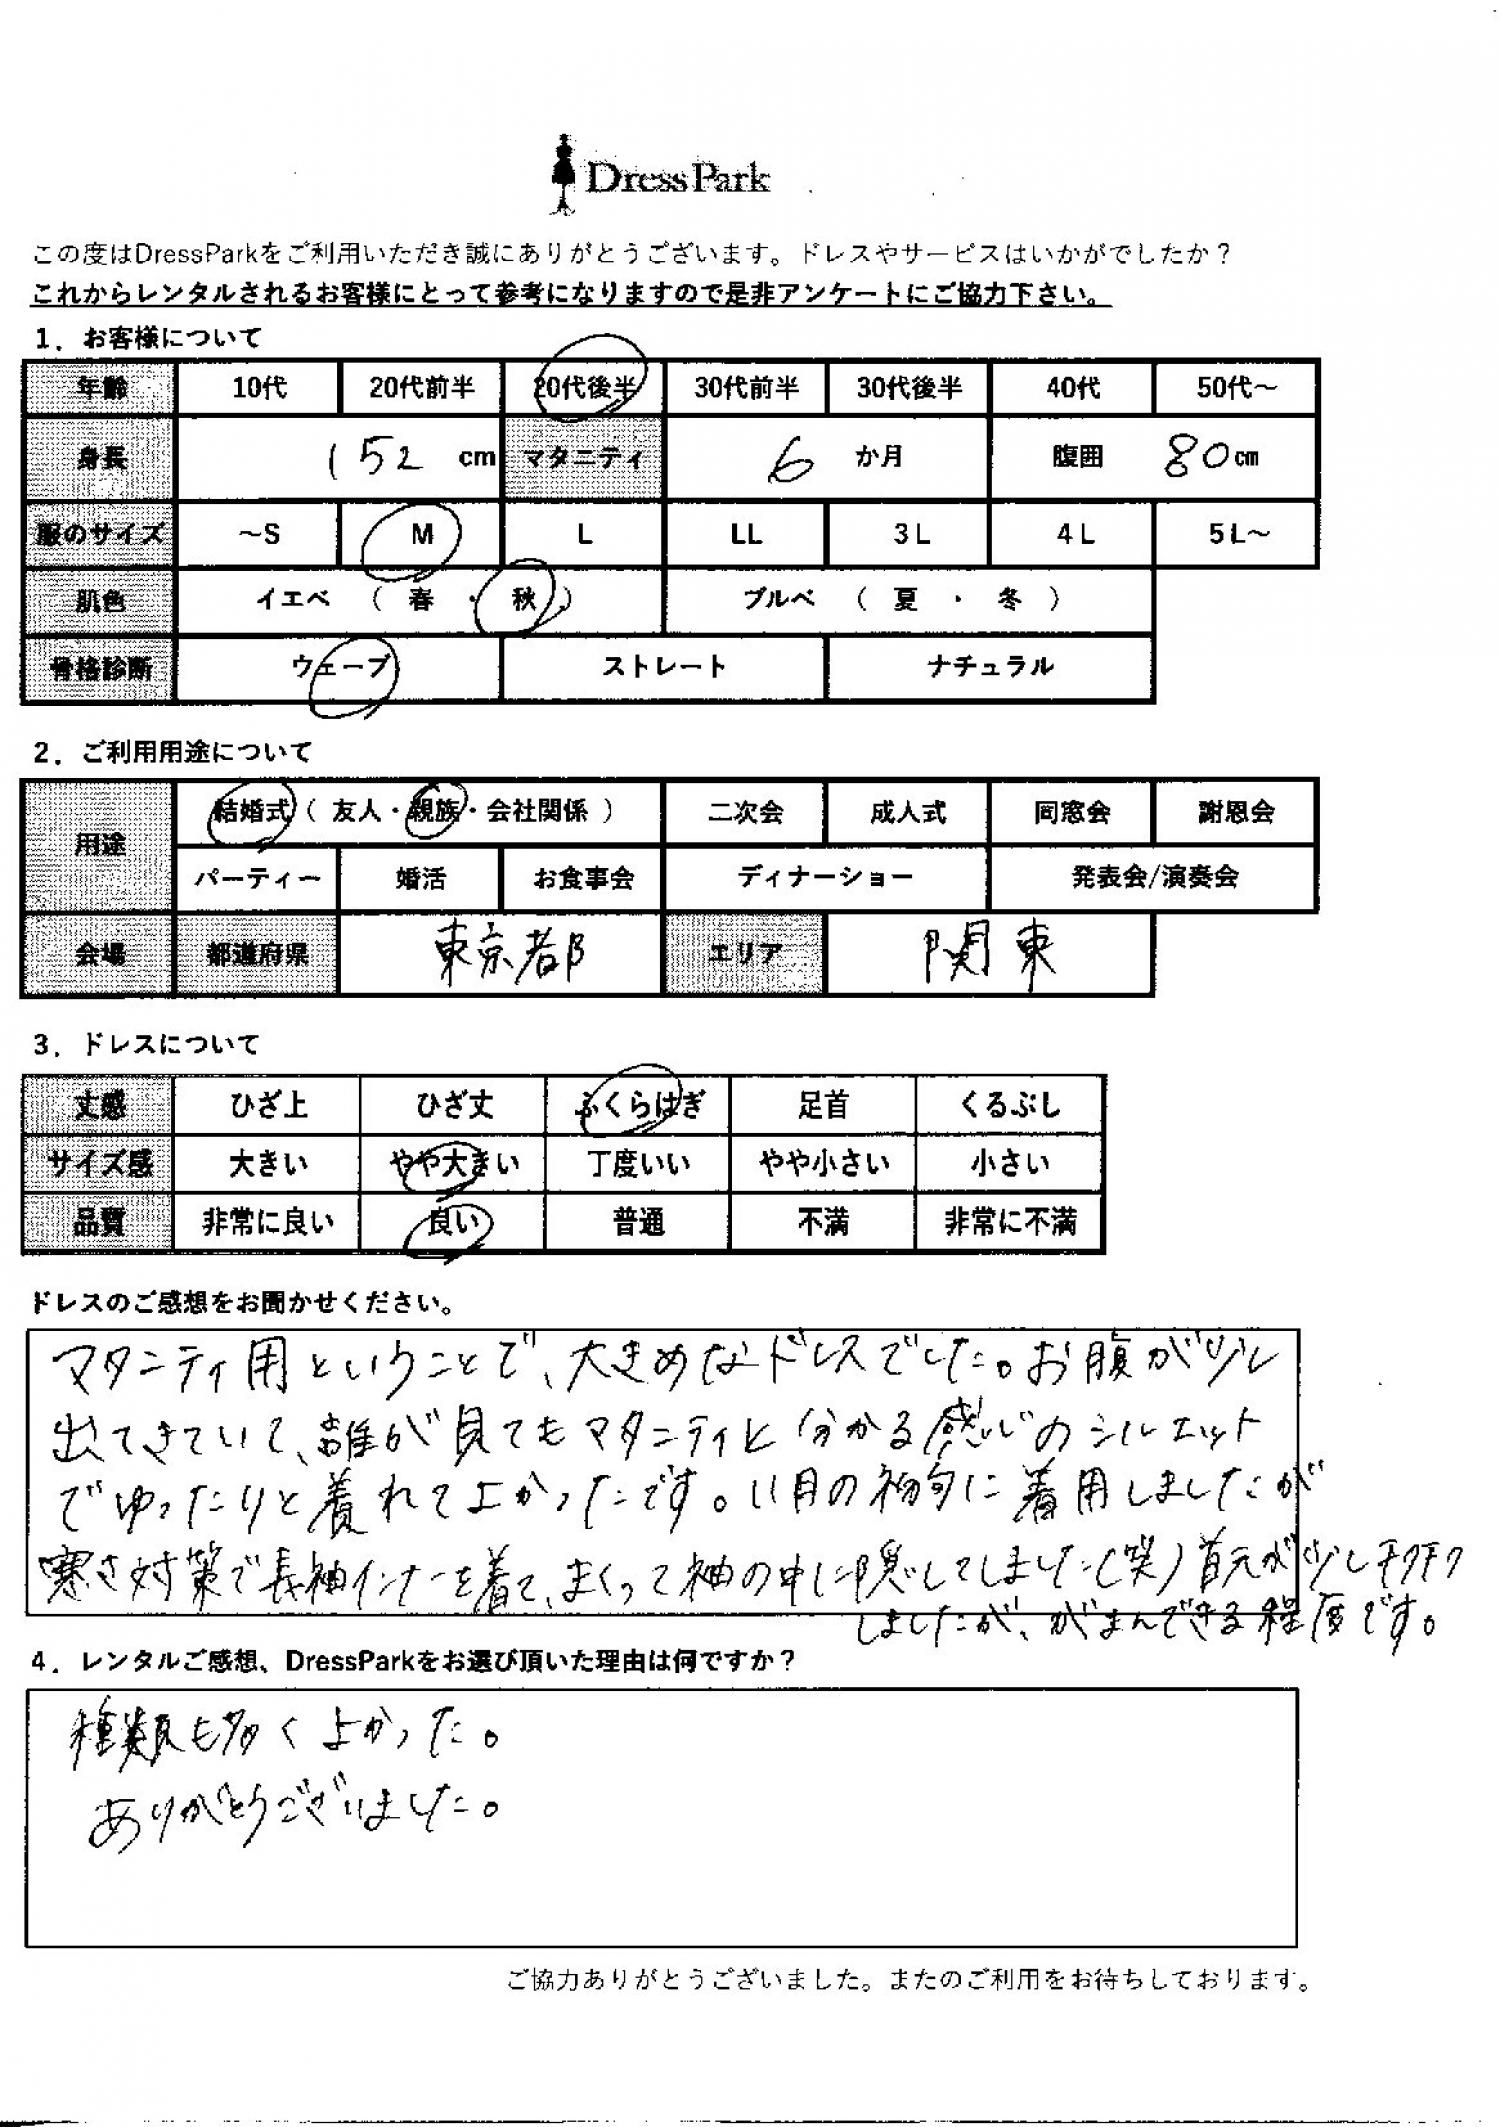 DressPark
この度はDressParkをご利用いただき誠にありがとうございます。ドレスやサービスはいかがでしたか？
これからレンタルされるお客様にとって参考になりますので是非アンケートにご協力下さい。
1．お客様について
年齢 10代 20代前半 20代後半 30代前半 30代後半 40代 50代～
身長 152 cm マタニティ 6 か月 腹囲 80 cm
服のサイズ ～S M L LL 3L 4L 5L～
肌色 イエベ （ 春 ・ 秋 ） ブルベ （ 夏 ・ 冬 ）
骨格診断 ウェーブ ストレート ナチュラル
2．ご利用用途について
用途 結婚式（ 友人・親族・会社関係 ） 二次会 成人式 同窓会 謝恩会
パーティー 婚活 お食事会 ディナーショー 発表会/演奏会
会場 都道府県 東京都 エリア 関東
3．ドレスについて
丈感 ひざ上 ひざ丈 ふくらはぎ 足首 くるぶし
サイズ感 大きい やや大きい 丁度いい やや小さい 小さい
品質 非常に良い 良い 普通 不満 非常に不満
ドレスのご感想をお聞かせください。
マタニティ用ということで、大きめなドレスでした。お腹が少し
出てきていて、誰が見てもマタニティと分かる感じのシルエット
でゆったりと着れてよかったです。11月の初旬に着用しましたが
寒さ対策で長袖インナーを着て、まくって袖の中に隠してしました(笑)首元が少しチクチク
しましたが、がまんできる程度です。
4．レンタルご感想、DressParkをお選び頂いた理由は何ですか？
種類も多くよかった。
ありがとうございました。
ご協力ありがとうございました。またのご利用をお待ちしております。